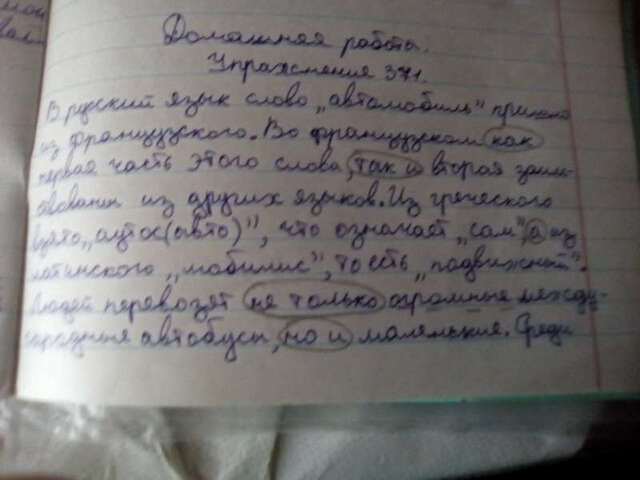 мои
Домашная работа.
Упражнения 371.
В русский язык слово „автомобиль" пришло
из французского. Во французском как
первая часть этого слова, так и вторая заим-
ствованы из других языков. Из греческого
взято „аутос(авто)", что означает „сам", а из
латинского „мобилис", то есть „подвижный".
Людей перевозят не только огромные между-
народные автобусы, но и маленькие. Среди